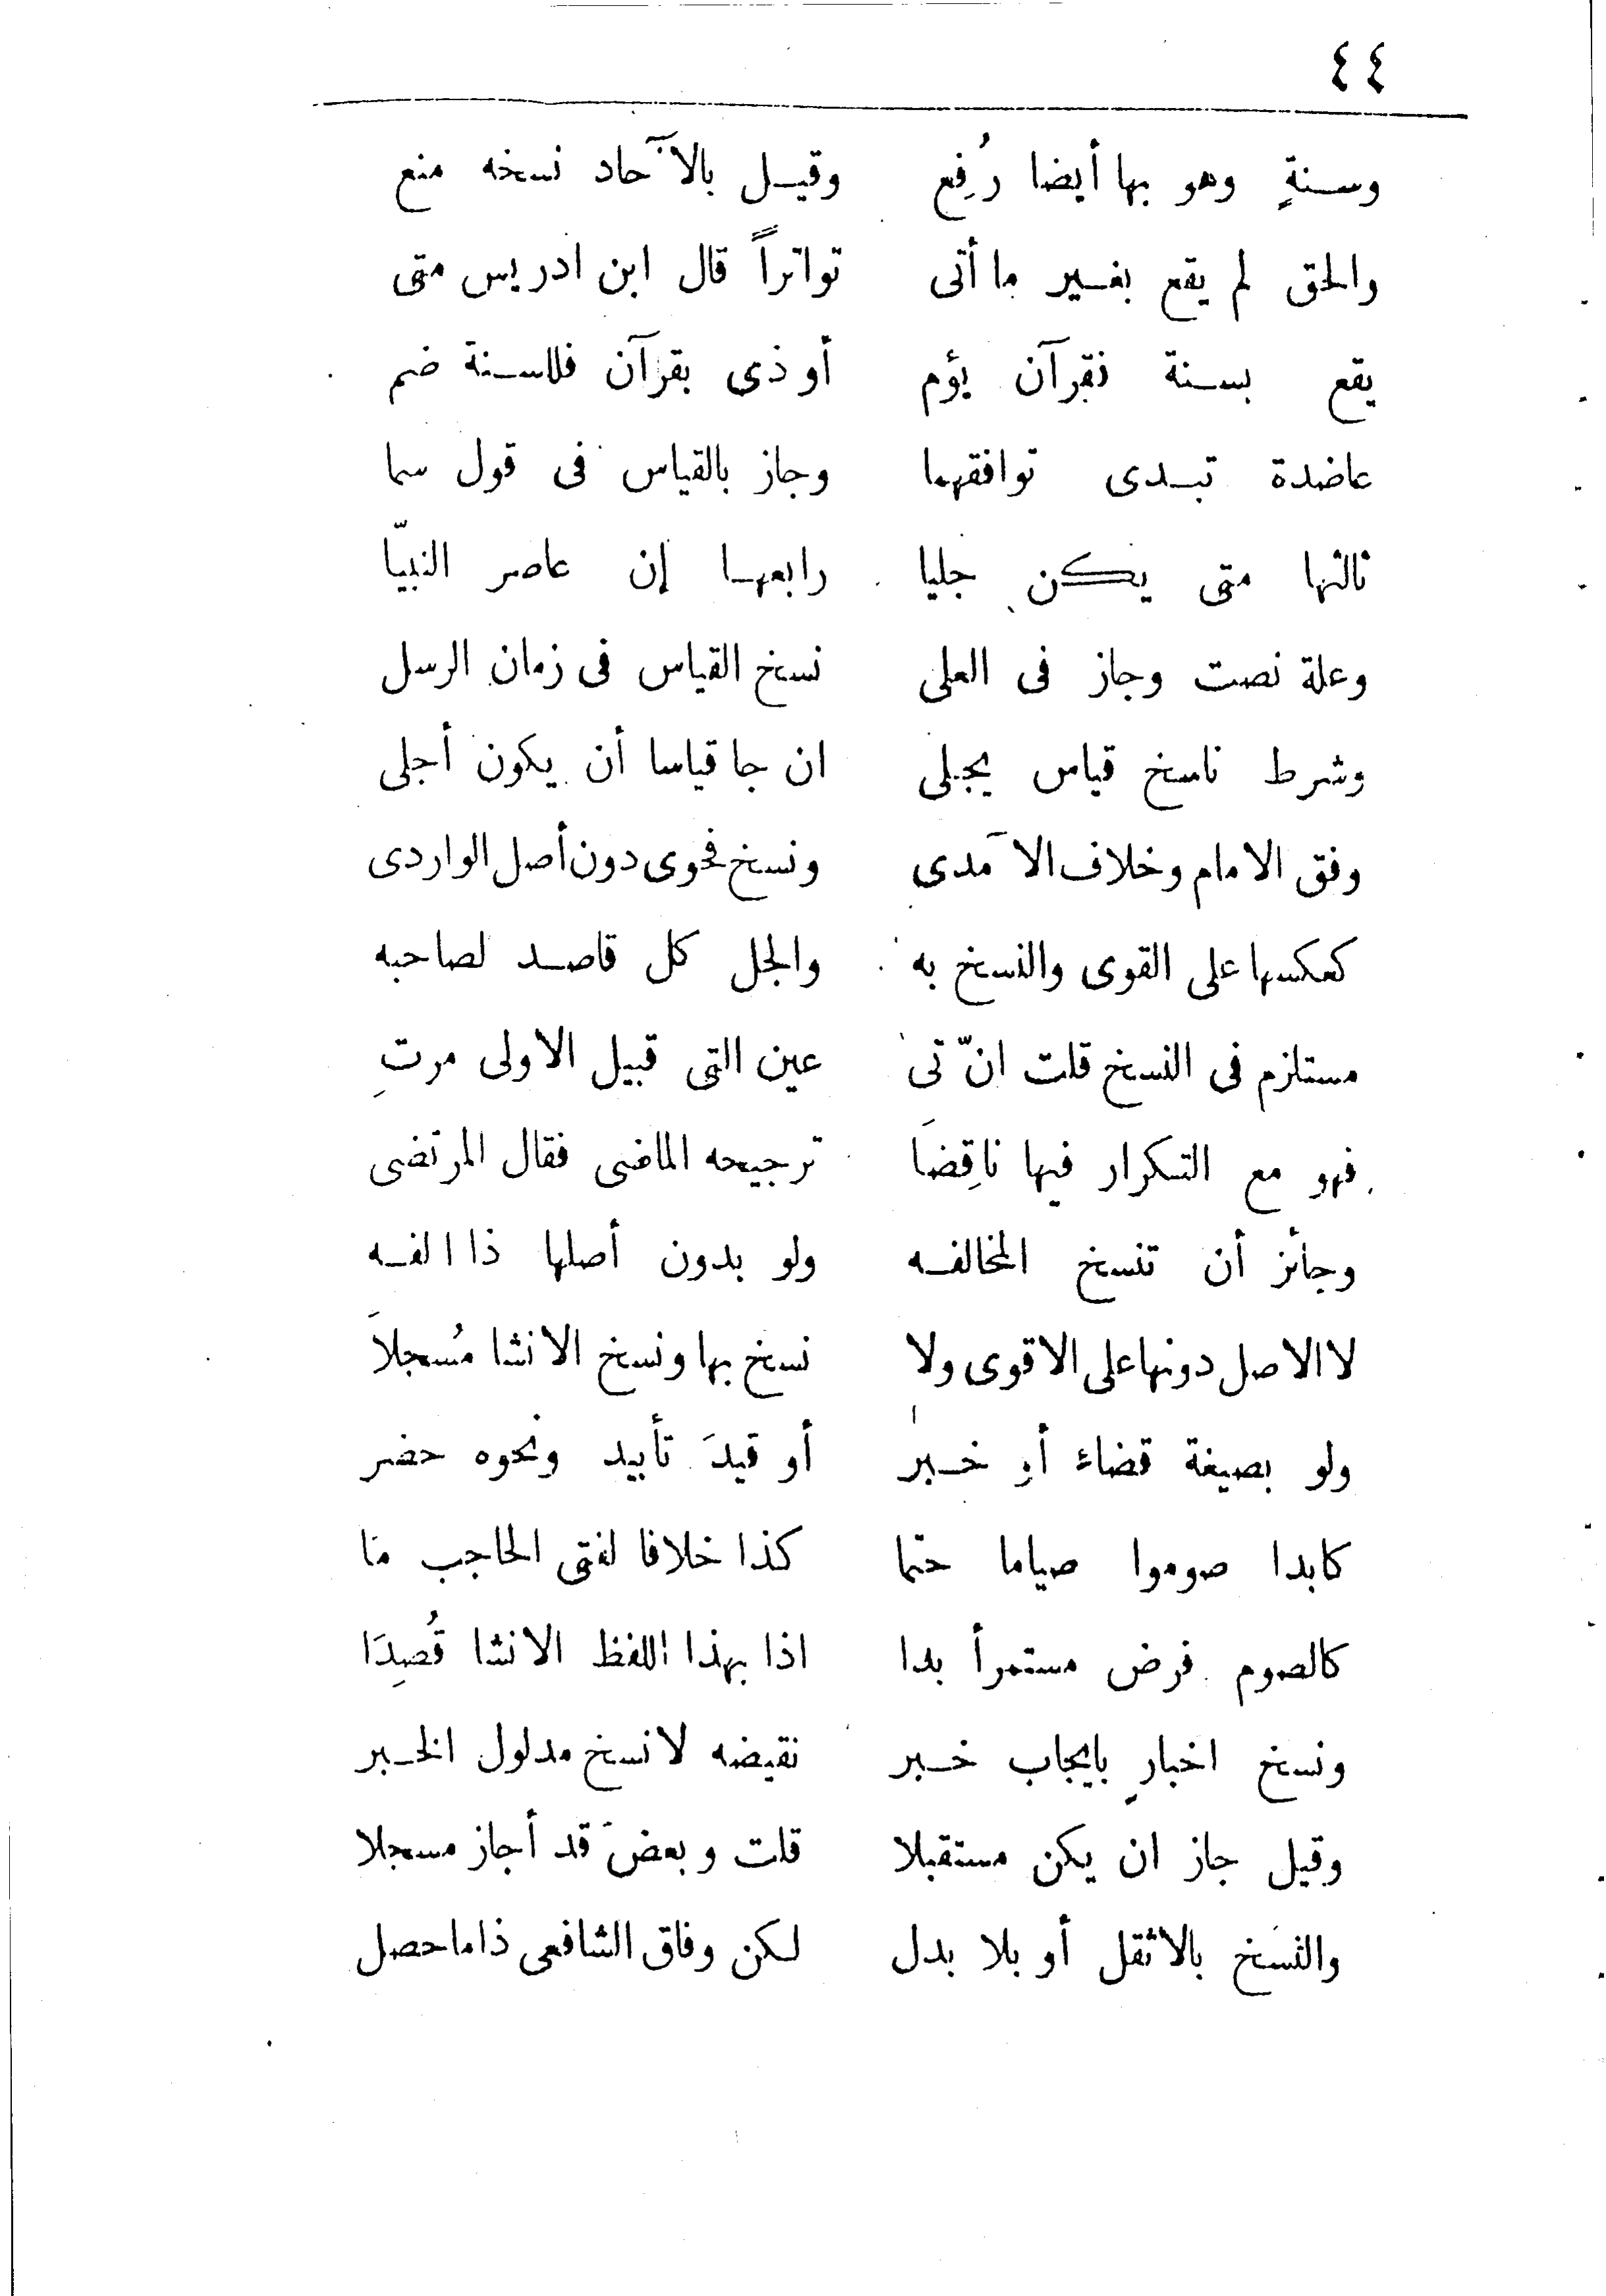 ٤٤
وسنةٍ وهو بها أيضا رُفِع وقيل بالآحاد نسخه منع
والحق لم يقع بغير ما أتى تواتراً قال ابن ادريس متى
يقع بسنة فقرآن يؤم أو ذى بقرآن فللسنة ضم
عاضدة تبدى توافقهما وجاز بالقياس فى قول سما
ثالثها متى يكن جليا رابعها إن عاصر النبيّا
وعلة نصت وجاز فى العلى نسخ القياس فى زمان الرسل
وشرط ناسخ قياس يجلى ان جا قياسا أن يكون أجلى
وفق الامام وخلاف الآمدى ونسخ فحوى دون أصل الواردى
كعكسها على القوى والنسخ به والجل كل قاصد لصاحبه
مستلزم فى النسخ قلت انّ تى عين التى قبيل الاولى مرتِ
فهو مع التكرار فيها ناقِضَا ترجيحه الماضى فقال المرتضى
وجائز أن تنسخ المخالفه ولو بدون أصلها ذا الفه
لا الاصل دونها على الاقوى ولا نسخ بها ونسخ الانشا مُسجلاَ
ولو بصيغة قضاء أو خبر أو قيدَ تأبيد ونحوه حضر
كابدا صوموا صياما حتما كذا خلافا لفتى الحاجب ما
كالصوم فرض مستمرأ بدا اذا بهذا اللفظ الانشا قُصِدَا
ونسخ اخبارٍ بايجاب خبر نقيضه لا نسخ مدلول الخبر
وقيل جاز ان يكن مستقبلا قلت وبعض قد أجاز مسجلا
والنسخ بالاثقل أو بلا بدل لكن وفاق الشافعى ذا ما حصل